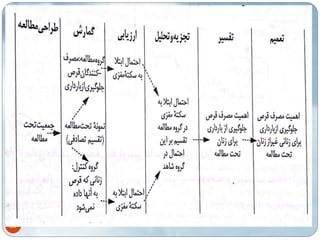 طراحی‌مطالعه
گمارش
ارزیابی
تجزیه‌وتحلیل
تفسیر
تعمیم
جمعیت‌تحت
مطالعه
گروه‌مطالعه:مصرف
-کنندگان‌قرص
جلوگیری‌ازبارداری
نمونهٔ تحت‌مطالعه
(تقسیم تصادفی)
گروه‌کنترل:
زنانی که قرص
به آنها داده
نمی‌شود
احتمال ابتلا
به سکتهٔ‌مغزی
احتمال‌ابتلا به
سکتهٔ مغزی
احتمال ابتلا به
سکتهٔ مغزی
در گروه مطالعه
تقسیم بر این
احتمال در
گروه شاهد
اهمیت مصرف قرص
جلوگیری از بارداری
برای زنان
تحت مطالعه
اهمیت مصرف قرص
جلوگیری ازبارداری
برای زنانی غیراز زنان
تحت مطالعه